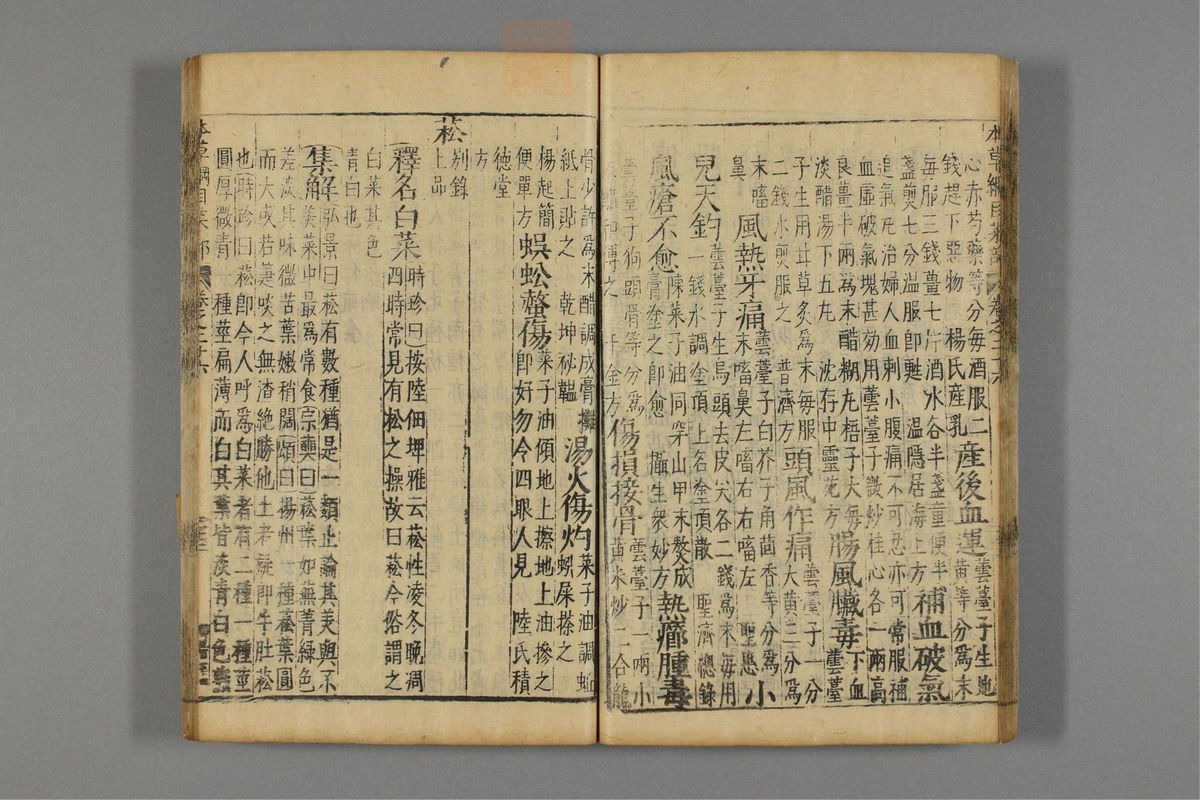 心赤芍藥等分每酒服二
錢趕下惡物 楊氏産乳
産後血運
蕓薹子生地
黃等分爲末
每服三錢薑七片酒水各半盞童便半
盞煎七分温服即甦 温隱居海上方
補血破氣
追氣丸治婦人血刺小腹痛不可忍亦可常服補
血虛破氣塊甚効用蕓薹子微炒桂心各一兩高
良薑半兩爲末醋糊丸梧子大每
淡醋湯下五丸 沈存中靈苑方
腸風臟毒
下血
蕓薹
子生用甘草炙爲末每服
二錢水煎服之 普濟方
頭風作痛
蕓薹子一分
大黃三分爲
末㗜
鼻
風熱牙痛
蕓薹子白芥子角茴香等分爲
末㗜鼻左㗜右右㗜左 聖惠
小
兒天釣
蕓薹子生烏頭去皮尖各二錢爲末每用
一錢水調塗頂上名塗頂散 聖濟總錄
風瘡不愈
陳菜子油同穿山甲末熬成
膏塗之即愈 攝生衆妙方
熱癤腫毒
蕓薹子狗頭骨等分爲
末醋和傅之 千金方
傷損接骨
蕓薹子一兩小
黃米炒二合龍
骨少許爲末醋調成膏攤
紙上貼之 乾坤秘韞
湯火傷灼
菜子油調蚯
蚓屎搽之
楊起簡
便單方
蜈蚣螫傷
菜子油傾地上擦地上油摻之
即好勿令四眼人見 陸氏積
德堂
方
菘
別錄
上品
釋名白菜
時珍曰按陸佃埤雅云菘性凌冬晚凋
四時常見有松之操故曰菘今俗謂之
白菜其色
青白也
集解
弘景曰菘有數種猶是一類止論其美與不
美菜中最爲常食宗奭曰菘葉如蕪菁綠色
差淡其味微苦葉嫩稍闊頌曰揚州一種菘葉圓
而大或若箑啖之無渣絶勝他土者疑即牛肚菘
也時珍曰菘即今人呼爲白菜者有二種一種莖
圓厚微青一種莖扁薄而白其葉皆淡青白色
本草綱目菜部 卷之二十六